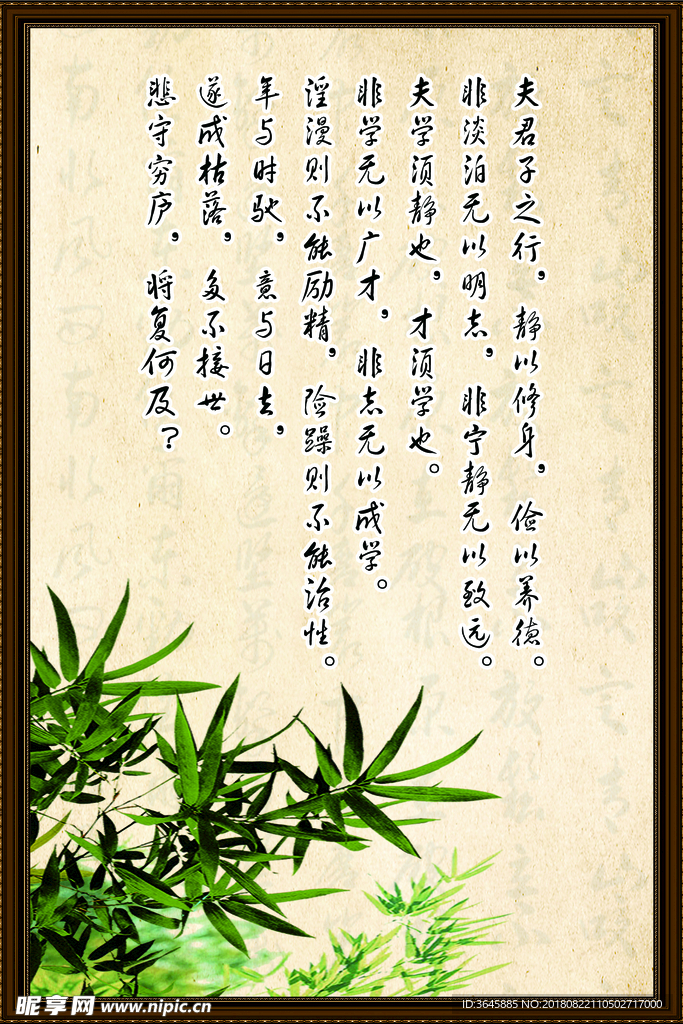 夫君子之行，静以修身，俭以养德。
非淡泊无以明志，非宁静无以致远。
夫学须静也，才须学也。
非学无以广才，非志无以成学。
淫漫则不能励精，险躁则不能治性。
年与时驰，意与日去，
遂成枯落，多不接世。
悲守穷庐，将复何及？
昵享网 www.nipic.cn
ID:3645885 NO:20180822110502717000